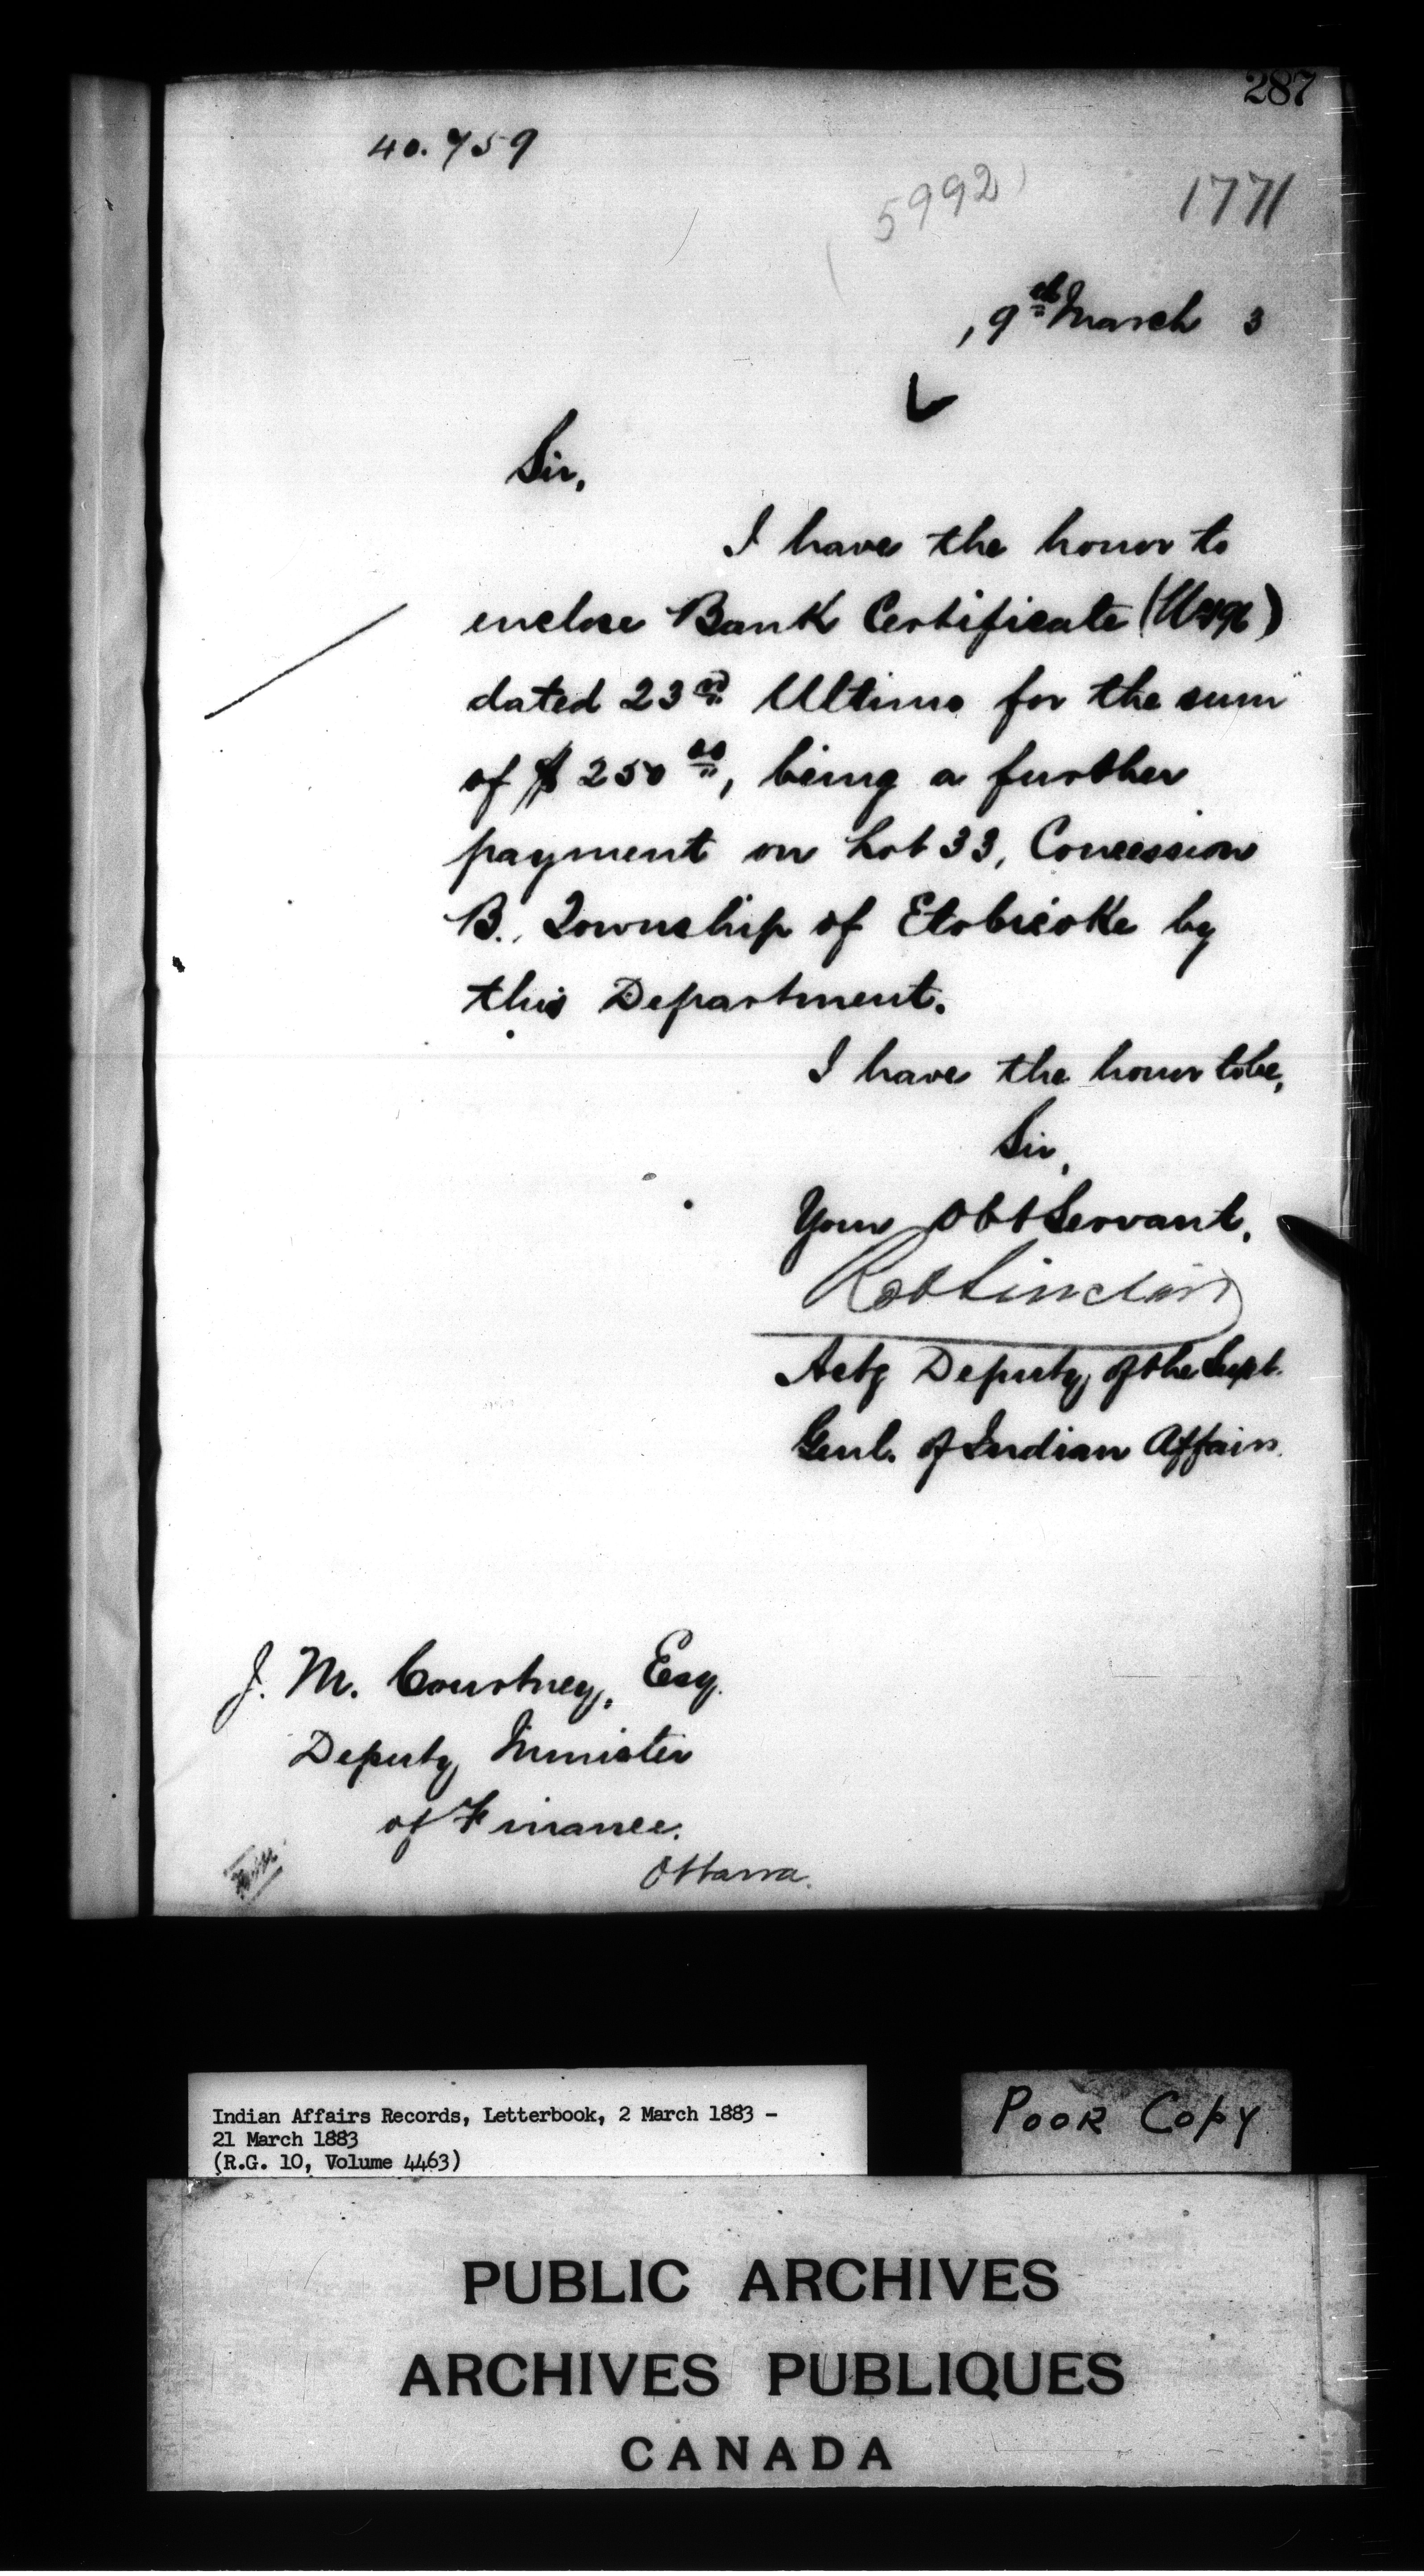 287
40.759
5992
1771
9th March 3
Sir,
I have the honor to
enclose Bank Certificate
dated 23rd Ultimo for the sum
of $250 00, being a further
payment on Lot 33, Concession
B., Township of Etobicoke by
this Department.
I have the honor to be,
Sir,
Your Obt Servant,
Robt Sinclair
Actg Deputy of the Supt.
Genl. of Indian Affairs.
J. M. Courtney, Esq.
Deputy Minister
of Finance.
Ottawa.
Indian Affairs Records, Letterbook, 2 March 1883 -
21 March 1883
(R.G. 10, Volume 4463)
POOR COPY
PUBLIC ARCHIVES
ARCHIVES PUBLIQUES
CANADA